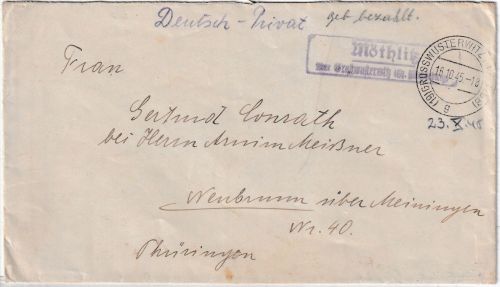 Deutsch - Privat
geb bezahlt.
Möthlitz
über Großwusterwitz
(19) GROSSWUSTERWITZ
16.10.45-18
a
23.X.45
Frau
Gertrud Conrath
bei Herrn Armin Meißner
Neubrunn über Meiningen
Nr. 40.
Thüringen